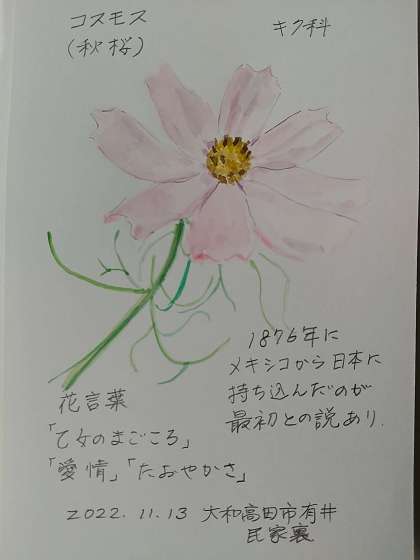 コスモス
(秋桜)
キク科
1876年に
メキシコから日本に
持ち込んだのが
最初との説あり.
花言葉
「乙女のまごころ」
「愛情」「たおやかさ」
2022.11.13 大和高田市有井
民家裏